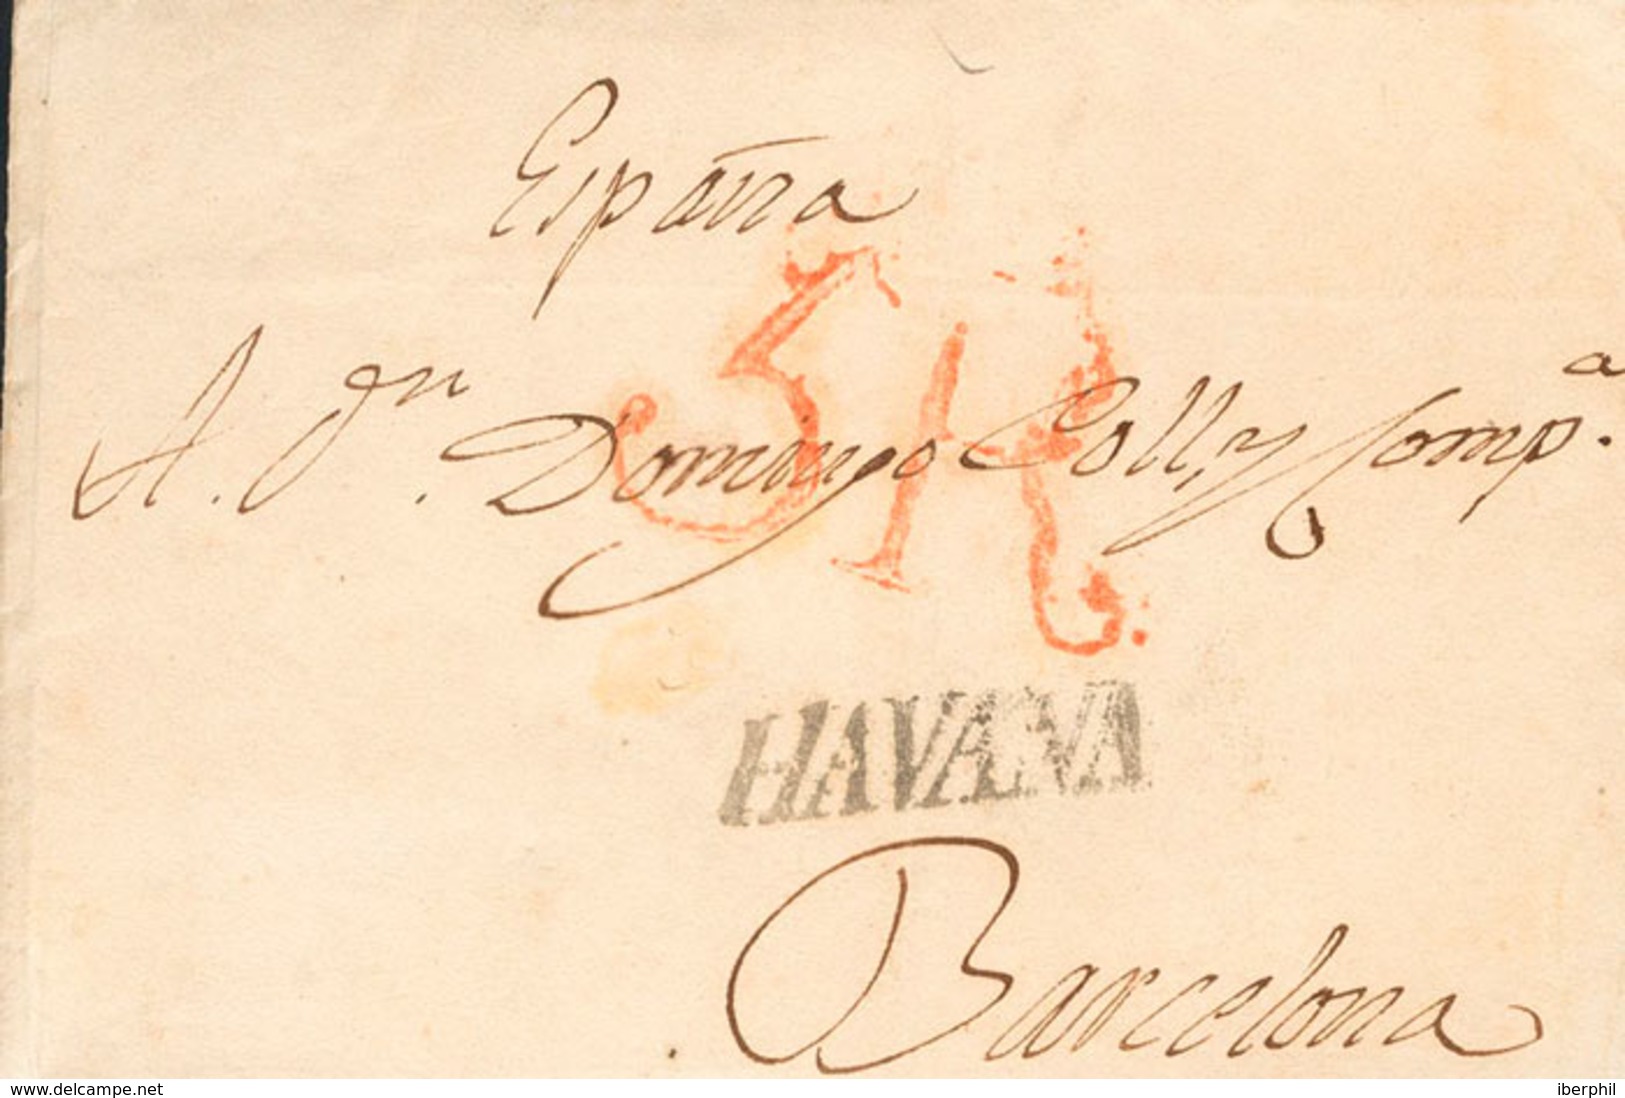 España
5R.
A. Dn. Domingo Coll, y Compa.
HAVANA
Barcelona
www.delcampe.net
iberphil